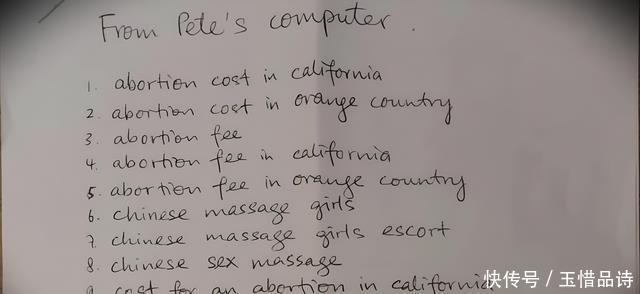 From Pete's computer.
1. abortion cost in california
2. abortion cost in orange country
3. abortion fee
4. abortion fee in california
5. abortion fee in orange country
6. chinese massage girls
7. chinese massage girls escort
8. chinese sex massage
9. cost for an abortion in california
快传号 / 玉惜品诗